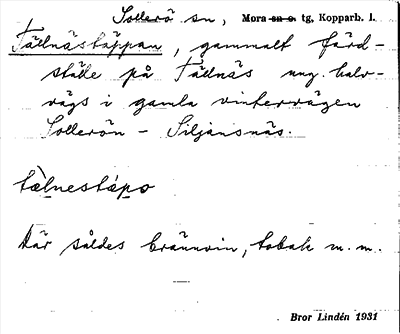 Sollerö sn, Mora sn o. tg, Kopparb. l.
Tällnästäppan, gammalt färd-
ställe på Tällnäs ung. halv-
vägs i gamla vintervägen
Sollerön - Siljansnäs.
tælnestápo
Där såldes brännvin, tobak m. m.
Bror Lindén 1931